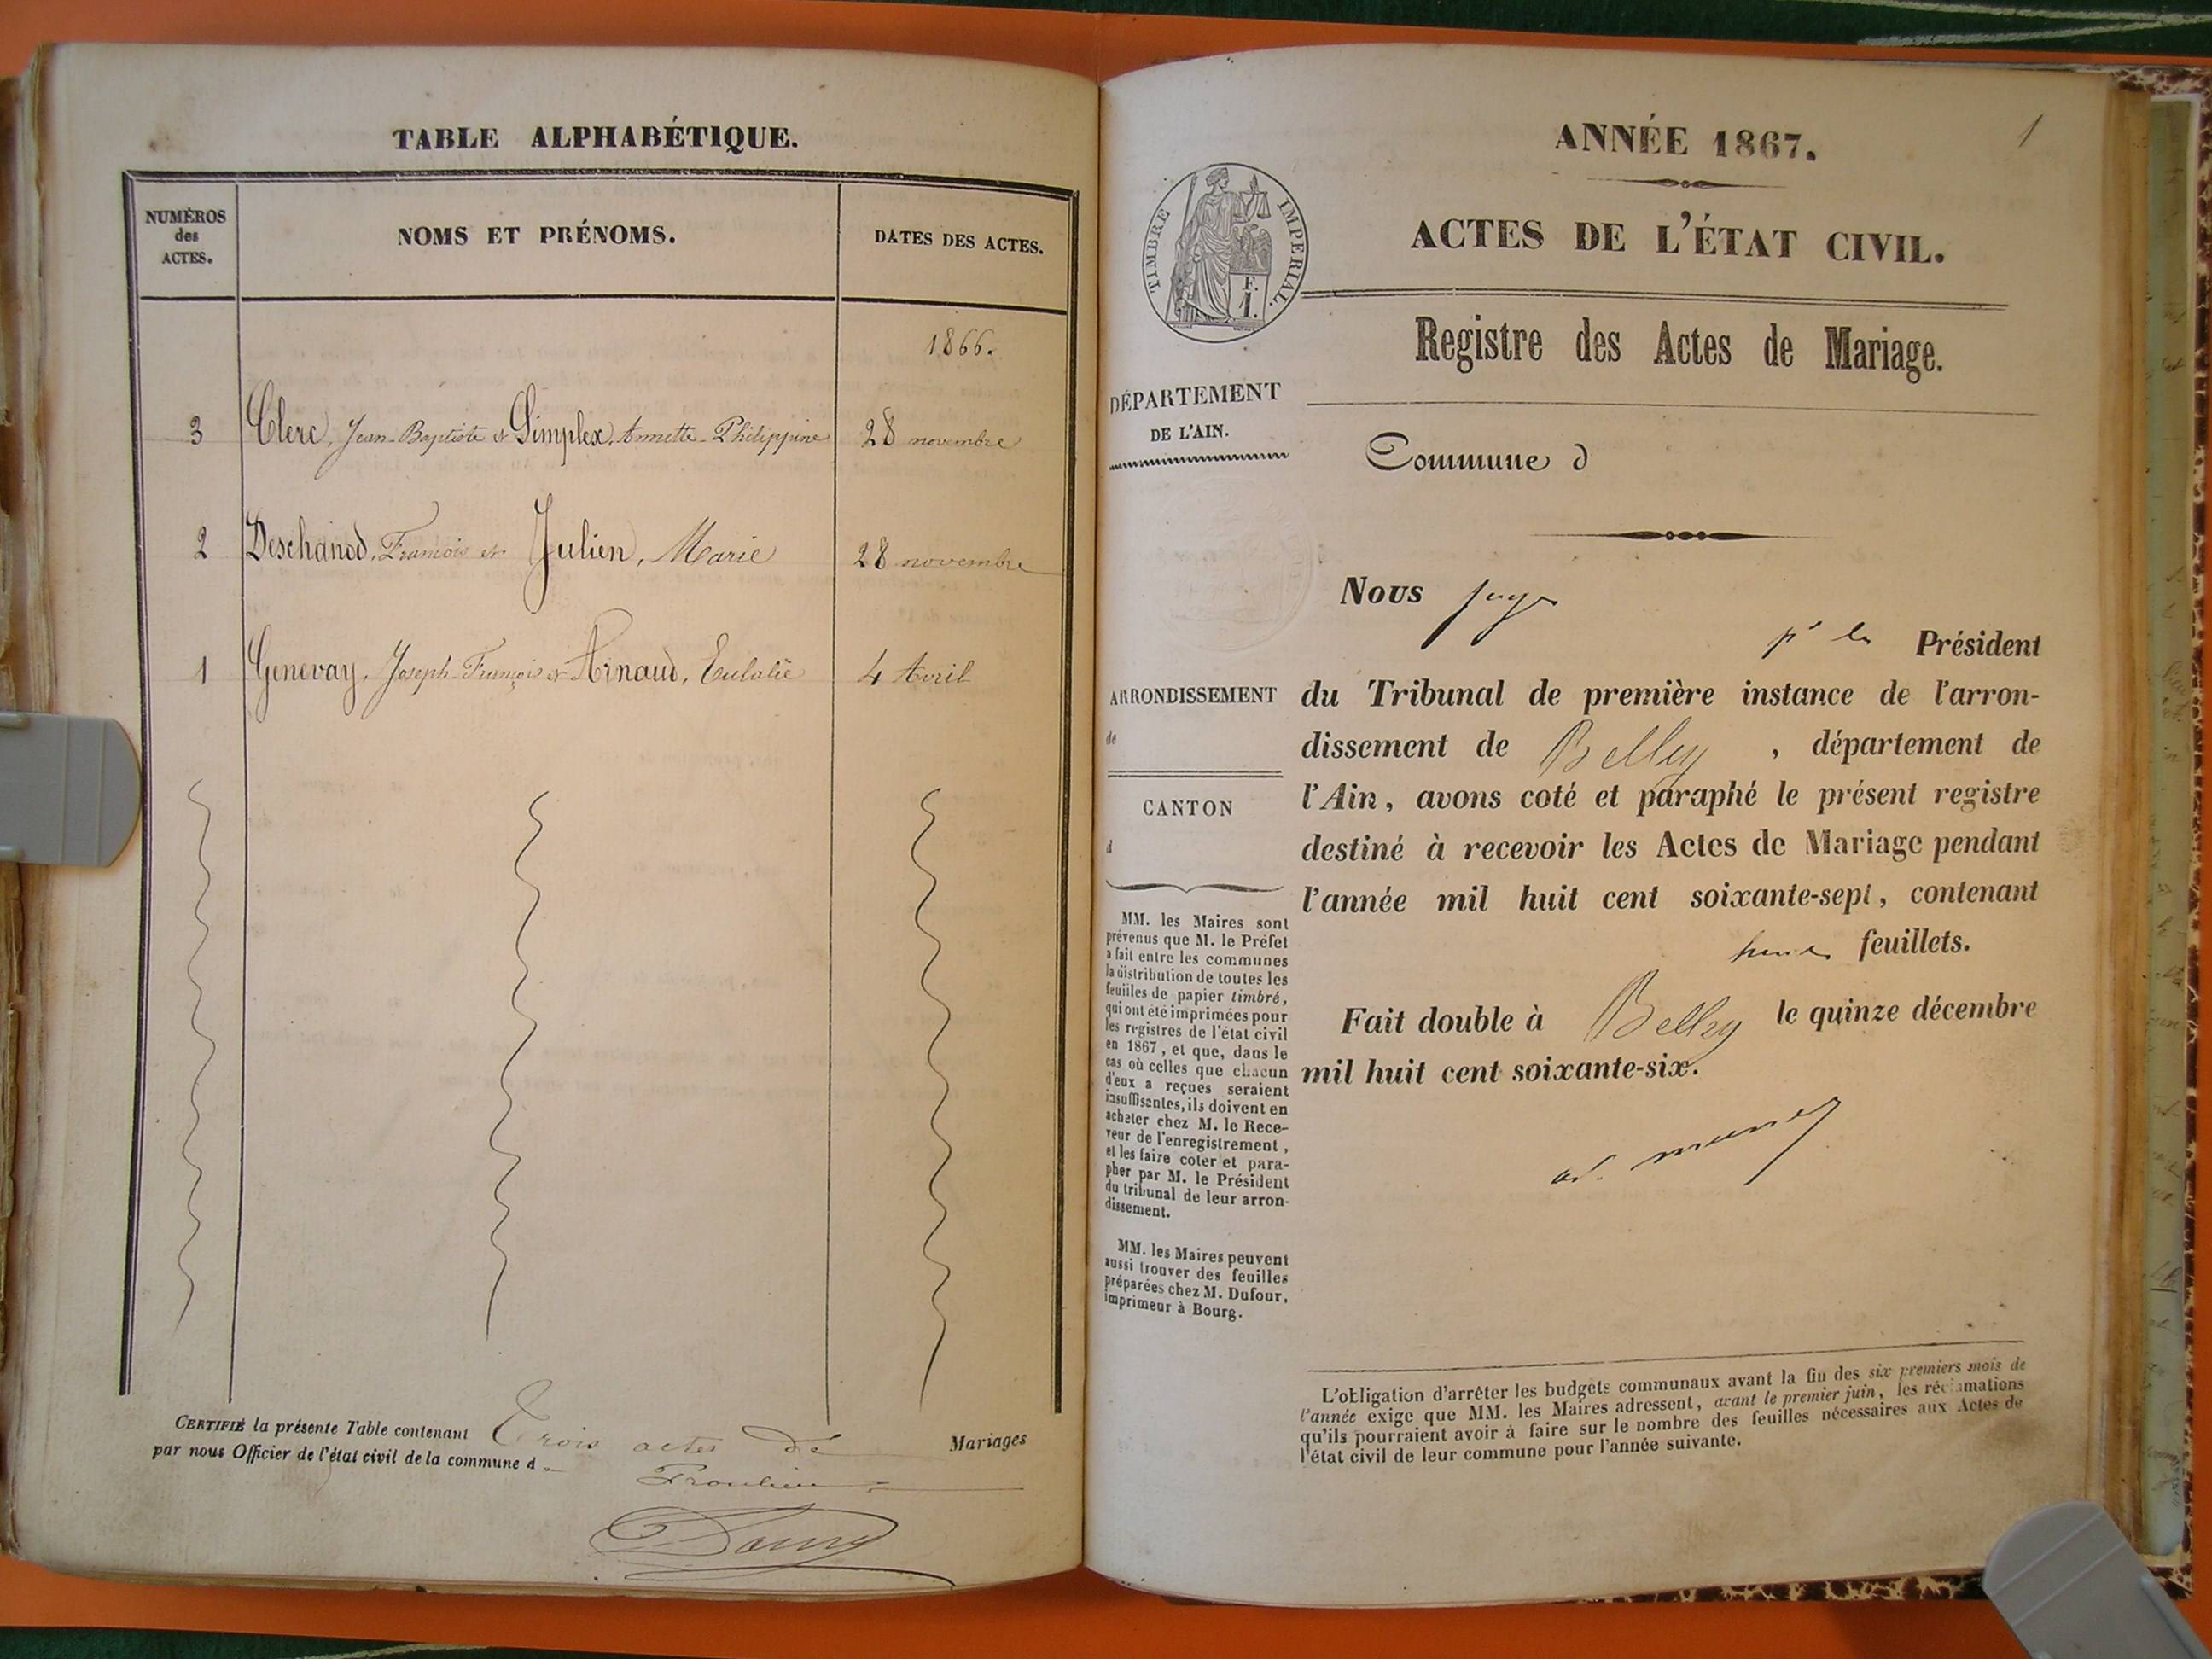 TABLE ALPHABÉTIQUE.
NUMÉROS
des
ACTES.
NOMS ET PRÉNOMS.
DATES DES ACTES.
1866.
3 Clerc, Jean-Baptiste et Simplex, Annette-Philippine 28 novembre
2 Deschanod, François et Julien, Marie 28 novembre
1 Genevay, Joseph-François et Arnaud, Eulalie 4 Avril
CERTIFIÉ la présente Table contenant Trois actes de Mariages
par nous Officier de l'état civil de la commune d
1
ANNÉE 1867.
ACTES DE L'ÉTAT CIVIL.
TIMBRE IMPERIAL.
F.
1.
Registre des Actes de Mariage.
DÉPARTEMENT
DE L'AIN.
Commune d
Nous juge
pr le Président
ARRONDISSEMENT
de
CANTON
d
du Tribunal de première instance de l'arron-
dissement de Belley, département de
l'Ain, avons coté et paraphé le présent registre
destiné à recevoir les Actes de Mariage pendant
l'année mil huit cent soixante-sept, contenant
feuillets.
Fait double à Belley le quinze décembre
mil huit cent soixante-six.
MM. les Maires sont
prévenus que M. le Préfet
a fait entre les communes
la distribution de toutes les
feuilles de papier timbré,
qui ont été imprimées pour
les registres de l'état civil
en 1867, et que, dans le
cas où celles que chacun
d'eux a reçues seraient
insuffisantes, ils doivent en
acheter chez M. le Rece-
veur de l'enregistrement,
et les faire coter et para-
pher par M. le Président
du tribunal de leur arron-
dissement.
MM. les Maires peuvent
aussi trouver des feuilles
préparées chez M. Dufour,
imprimeur à Bourg.
L'obligation d'arrêter les budgets communaux avant la fin des six premiers mois de
l'année exige que MM. les Maires adressent, avant le premier juin, les réclamations
qu'ils pourraient avoir à faire sur le nombre des feuilles nécessaires aux Actes de
l'état civil de leur commune pour l'année suivante.